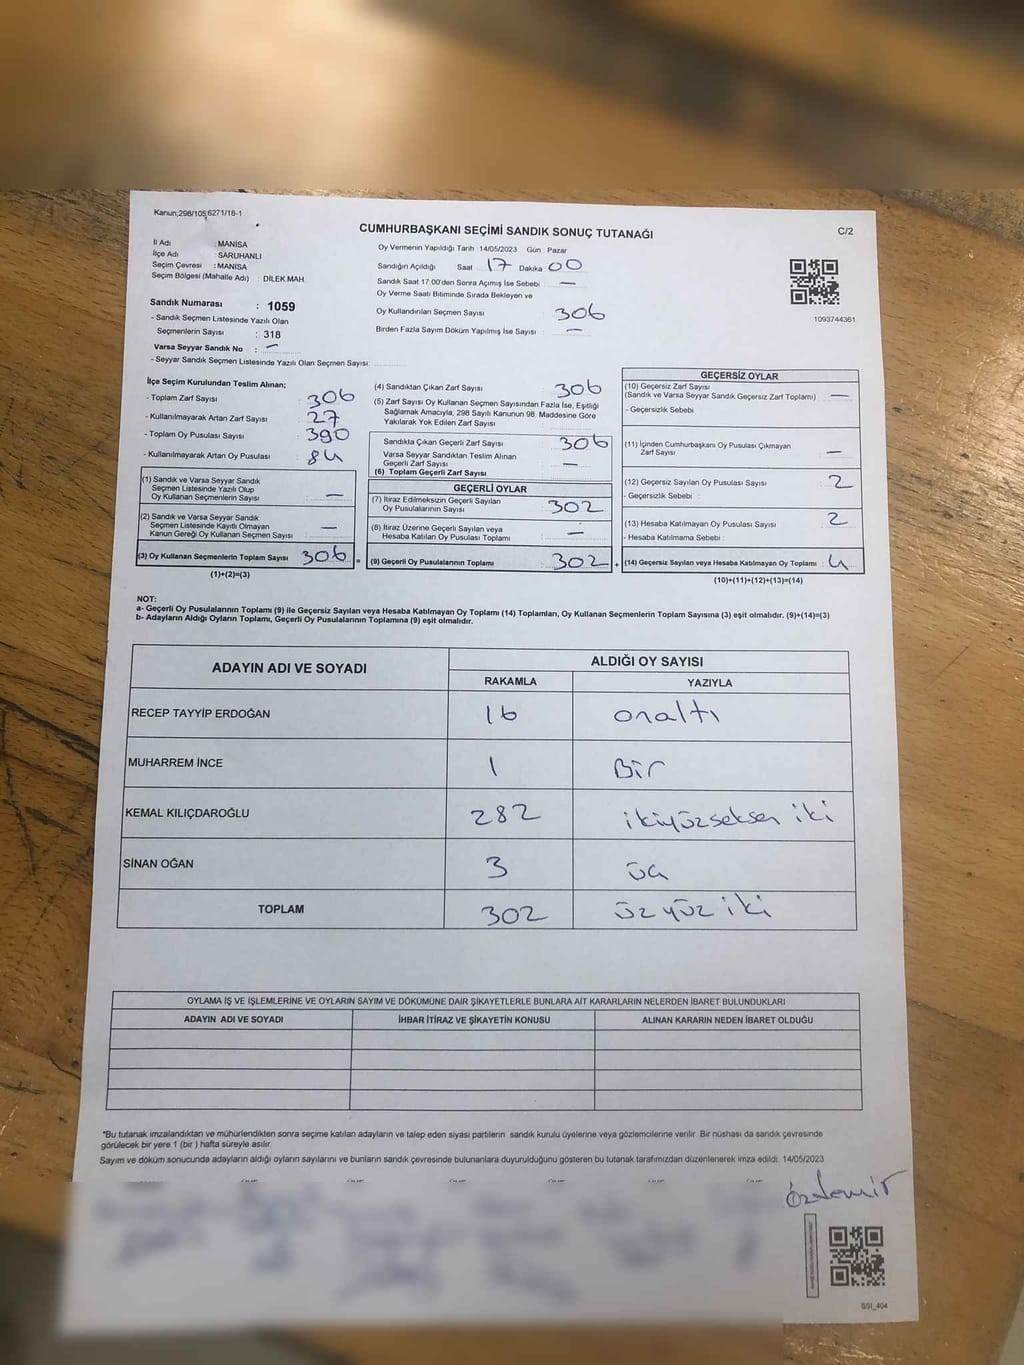 Kanun;298/105;6271/18-1
CUMHURBAŞKANI SEÇİMİ SANDIK SONUÇ TUTANAĞI
C/2
İl Adı : MANİSA
İlçe Adı : SARUHANLI
Seçim Çevresi : MANİSA
Seçim Bölgesi (Mahalle Adı) : DİLEK MAH.
Sandık Numarası : 1059
- Sandık Seçmen Listesinde Yazılı Olan
Seçmenlerin Sayısı : 318
Varsa Seyyar Sandık No : —
- Seyyar Sandık Seçmen Listesinde Yazılı Olan Seçmen Sayısı:
Oy Vermenin Yapıldığı Tarih :14/05/2023 Gün : Pazar
Sandığın Açıldığı Saat 17 Dakika 00
Sandık Saat 17:00'den Sonra Açılmış İse Sebebi : —
Oy Verme Saati Bitiminde Sırada Bekleyen ve
Oy Kullandırılan Seçmen Sayısı : 306
Birden Fazla Sayım Döküm Yapılmış İse Sayısı : —
1093744361
İlçe Seçim Kurulundan Teslim Alınan;
- Toplam Zarf Sayısı : 306
- Kullanılmayarak Artan Zarf Sayısı : 27
- Toplam Oy Pusulası Sayısı : 390
- Kullanılmayarak Artan Oy Pusulası : 84
(1) Sandık ve Varsa Seyyar Sandık
Seçmen Listesinde Yazılı Olup
Oy Kullanan Seçmenlerin Sayısı : —
(2) Sandık ve Varsa Seyyar Sandık
Seçmen Listesinde Kayıtlı Olmayan
Kanun Gereği Oy Kullanan Seçmen Sayısı : —
(3) Oy Kullanan Seçmenlerin Toplam Sayısı : 306
(1)+(2)=(3)
=
(4) Sandıktan Çıkan Zarf Sayısı : 306
(5) Zarf Sayısı Oy Kullanan Seçmen Sayısından Fazla İse, Eşitliği
Sağlamak Amacıyla, 298 Sayılı Kanunun 98. Maddesine Göre
Yakılarak Yok Edilen Zarf Sayısı :
Sandıkla Çıkan Geçerli Zarf Sayısı : 306
Varsa Seyyar Sandıktan Teslim Alınan
Geçerli Zarf Sayısı : —
(6) Toplam Geçerli Zarf Sayısı :
GEÇERLİ OYLAR
(7) İtiraz Edilmeksizin Geçerli Sayılan
Oy Pusulalarının Sayısı : 302
(8) İtiraz Üzerine Geçerli Sayılan veya
Hesaba Katılan Oy Pusulası Toplamı : —
(9) Geçerli Oy Pusulalarının Toplamı : 302
+
GEÇERSİZ OYLAR
(10) Geçersiz Zarf Sayısı
(Sandık ve Varsa Seyyar Sandık Geçersiz Zarf Toplamı) : —
- Geçersizlik Sebebi :
(11) İçinden Cumhurbaşkanı Oy Pusulası Çıkmayan
Zarf Sayısı : —
(12) Geçersiz Sayılan Oy Pusulası Sayısı : 2
- Geçersizlik Sebebi :
(13) Hesaba Katılmayan Oy Pusulası Sayısı : 2
- Hesaba Katılmama Sebebi :
(14) Geçersiz Sayılan veya Hesaba Katılmayan Oy Toplamı : 4
(10)+(11)+(12)+(13)=(14)
NOT:
a- Geçerli Oy Pusulalarının Toplamı (9) ile Geçersiz Sayılan veya Hesaba Katılmayan Oy Toplamı (14) Toplamları, Oy Kullanan Seçmenlerin Toplam Sayısına (3) eşit olmalıdır. (9)+(14)=(3)
b- Adayların Aldığı Oyların Toplamı, Geçerli Oy Pusulalarının Toplamına (9) eşit olmalıdır.
ADAYIN ADI VE SOYADI ALDIĞI OY SAYISI
RAKAMLA YAZIYLA
RECEP TAYYİP ERDOĞAN 16 onaltı
MUHARREM İNCE 1 Bir
KEMAL KILIÇDAROĞLU 282 ikiyüzseksen iki
SİNAN OĞAN 3 üç
TOPLAM 302 üzyüz iki
OYLAMA İŞ VE İŞLEMLERİNE VE OYLARIN SAYIM VE DÖKÜMÜNE DAİR ŞİKAYETLERLE BUNLARA AİT KARARLARIN NELERDEN İBARET BULUNDUKLARI
ADAYIN ADI VE SOYADI İHBAR İTİRAZ VE ŞİKAYETİN KONUSU ALINAN KARARIN NEDEN İBARET OLDUĞU
*Bu tutanak imzalandıktan ve mühürlendikten sonra seçime katılan adayların ve talep eden siyasi partilerin sandık kurulu üyelerine veya gözlemcilerine verilir. Bir nüshası da sandık çevresinde
görülecek bir yere 1 (bir ) hafta süreyle asılır.
Sayım ve döküm sonucunda adayların aldığı oyların sayılarını ve bunların sandık çevresinde bulunanlara duyurulduğunu gösteren bu tutanak tarafımızdan düzenlenerek imza edildi. 14/05/2023
özdemir
SSI_404